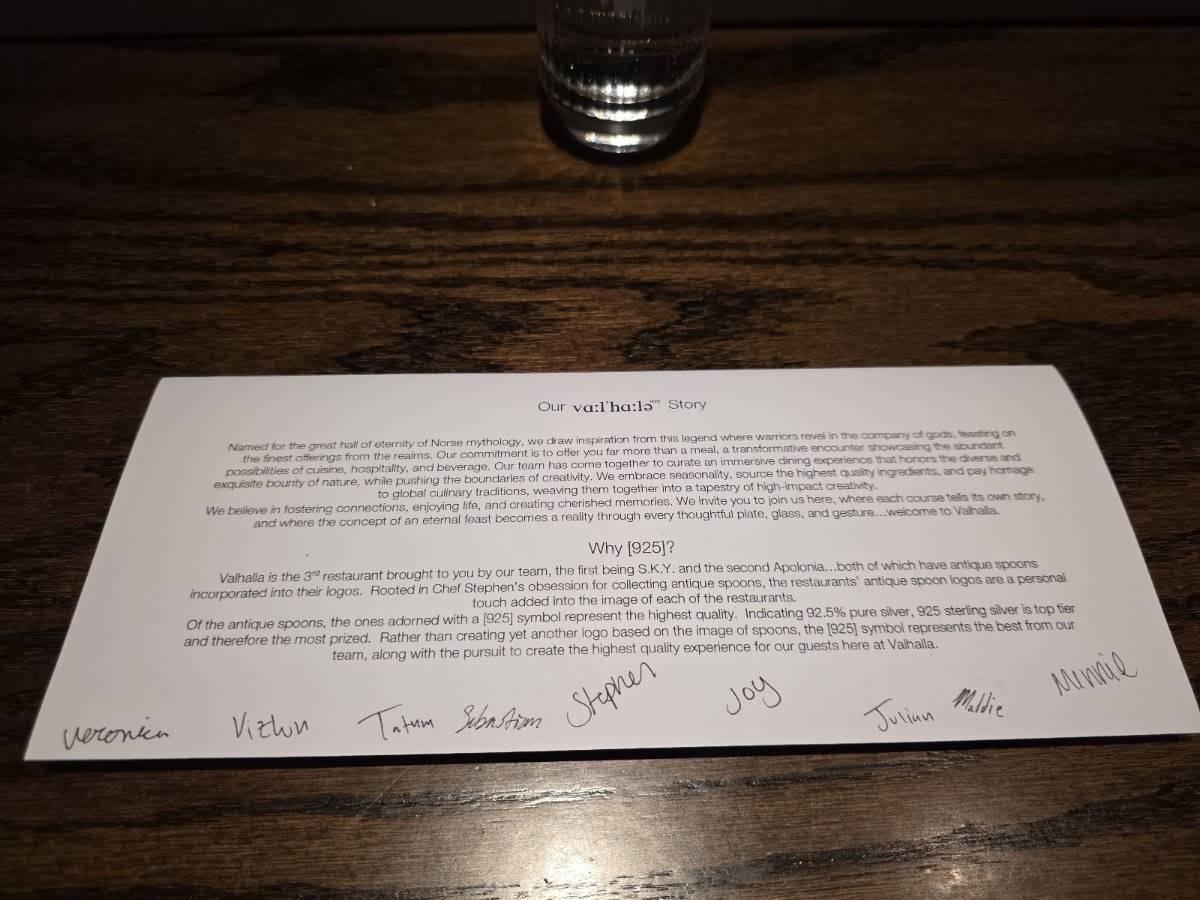 Our vɑːlˈhɑːlə Story
Named for the great hall of eternity of Norse mythology, we draw inspiration from this legend where warriors revel in the company of gods, feasting on
the finest offerings from the realms. Our commitment is to offer you far more than a meal, a transformative encounter showcasing the abundant
possibilities of cuisine, hospitality, and beverage. Our team has come together to curate an immersive dining experience that honors the diverse and
exquisite bounty of nature, while pushing the boundaries of creativity. We embrace seasonality, source the highest quality ingredients, and pay homage
to global culinary traditions, weaving them together into a tapestry of high-impact creativity.
We believe in fostering connections, enjoying life, and creating cherished memories. We invite you to join us here, where each course tells its own story,
and where the concept of an eternal feast becomes a reality through every thoughtful plate, glass, and gesture...welcome to Valhalla.
Why [925]?
Valhalla is the 3rd restaurant brought to you by our team, the first being S.K.Y. and the second Apolonia...both of which have antique spoons
incorporated into their logos. Rooted in Chef Stephen's obsession for collecting antique spoons, the restaurants' antique spoon logos are a personal
touch added into the image of each of the restaurants.
Of the antique spoons, the ones adorned with a [925] symbol represent the highest quality. Indicating 92.5% pure silver, 925 sterling silver is top tier
and therefore the most prized. Rather than creating yet another logo based on the image of spoons, the [925] symbol represents the best from our
team, along with the pursuit to create the highest quality experience for our guests here at Valhalla.
Veronica Tatum Sebastian Stephen Joy Julian Minnie